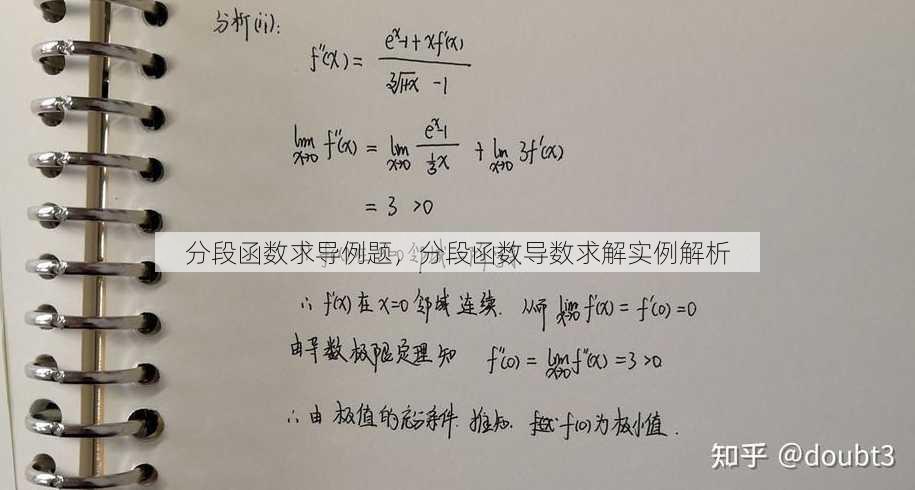 分析(ii):
f''(x) = (e^x-1+xf'(x)) / (∛(1+x) -1)
lim x→0 f''(x) = lim x→0 (e^x-1)/(1/3 x) + lim x→0 3f'(x)
= 3 >0
分段函数求导例题，分段函数导数求解实例解析
∴ f'(x) 在 x=0 邻域 连续. 从而 lim x→0 f'(x) = f'(0) =0
由导数极限定理知 f''(0) = lim x→0 f''(x) = 3 >0
∴ 由 极值的充分条件. 推知. f(0) 为极小值.
知乎 @doubt3